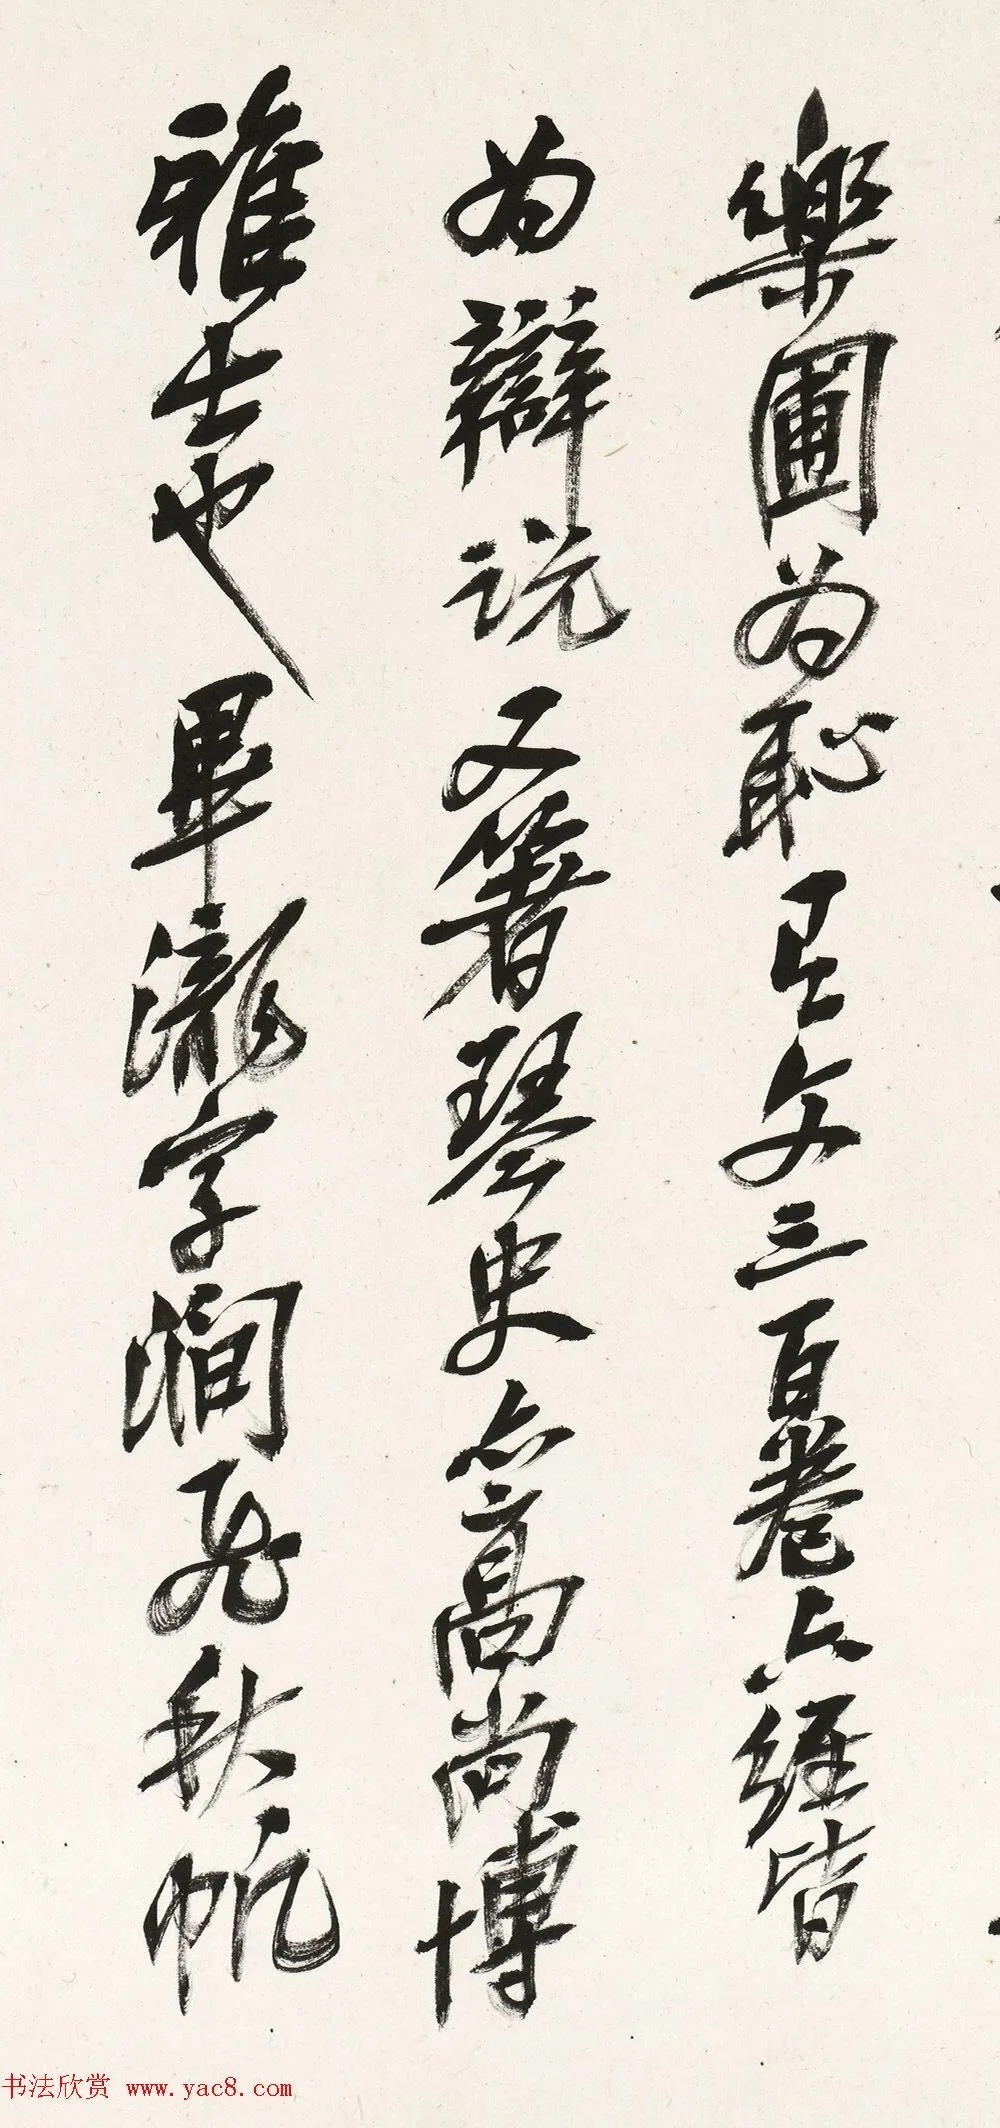 樂圃為恥有文三百卷六經皆
為辯说又著琴史亦高尚博
雅士也畢瀧字澗飛秋帆
书法欣赏 www.yac8.com